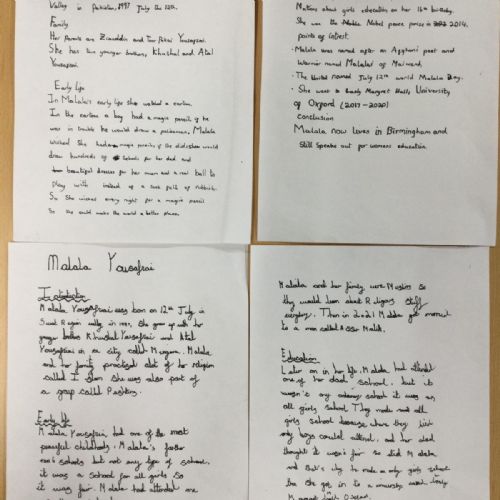 Valley in Pakistan, 1997 July the 12th.
Family
Her Parents are Ziauddin and Tor Pekai Yousafzai.
She has two younger brothers, Khushal and Atal
Yousafzai.
Early life
In Malala's early life she watched a cartoon.
In the cartoon a boy had a magic pencil if he
was in trouble he would draw a policeman, Malala
wished She had a magic pencil if she did she would
draw hundreds of schools for her dad and
beautiful dresses for her mum and a real ball to
play with instead of a sock full of rubbish.
So She wished every night for a magic pencil
So she could make the world a better place.
Nations about girls education on her 16th birthday.
She won the Nobel peace prize in 2014.
points of interest.
· Malala was named after an Afghani poet and
Warrior named Malalai of Maiwand.
· The United named July 12th world Malala Day.
· She went to Lady Margret Hall, University
of Oxford (2017-2020)
conclusion
Malala now lives in Birmingham and
Still Speaks out for womens education.
Malala Yousafzai
Introduction
Malala Yousafzai was born on 12th July in
Swat Region vally in 1997. She grew up with her
younger brothers Khushal Yousafzai and Atal
Yousafzai in a city called Mingora. Malala
and her family practised alot of her religion
called Islam she was also part of
a group called Pashtun.
Early life
Malala Yousafzai, had one of the most
peaceful childhoods. Malala's father
ran schools but not any type of school,
it was a school for all girls so
it was fair. Malala had attended one
Malala and her family were Muslims so
they would learn about Religious stuff
everyday. Then in 2021 Malala got married
to a man called Asser Malik.
Education
Later on in her life, Malala had attended
one of her dads school. but it
wasn't any ordinary school it was an
all girls school They made and all
girls school because where they live
only boys could attend, and her dad
thought it wasn't fair so did Malala
and that's why he made a only girls school